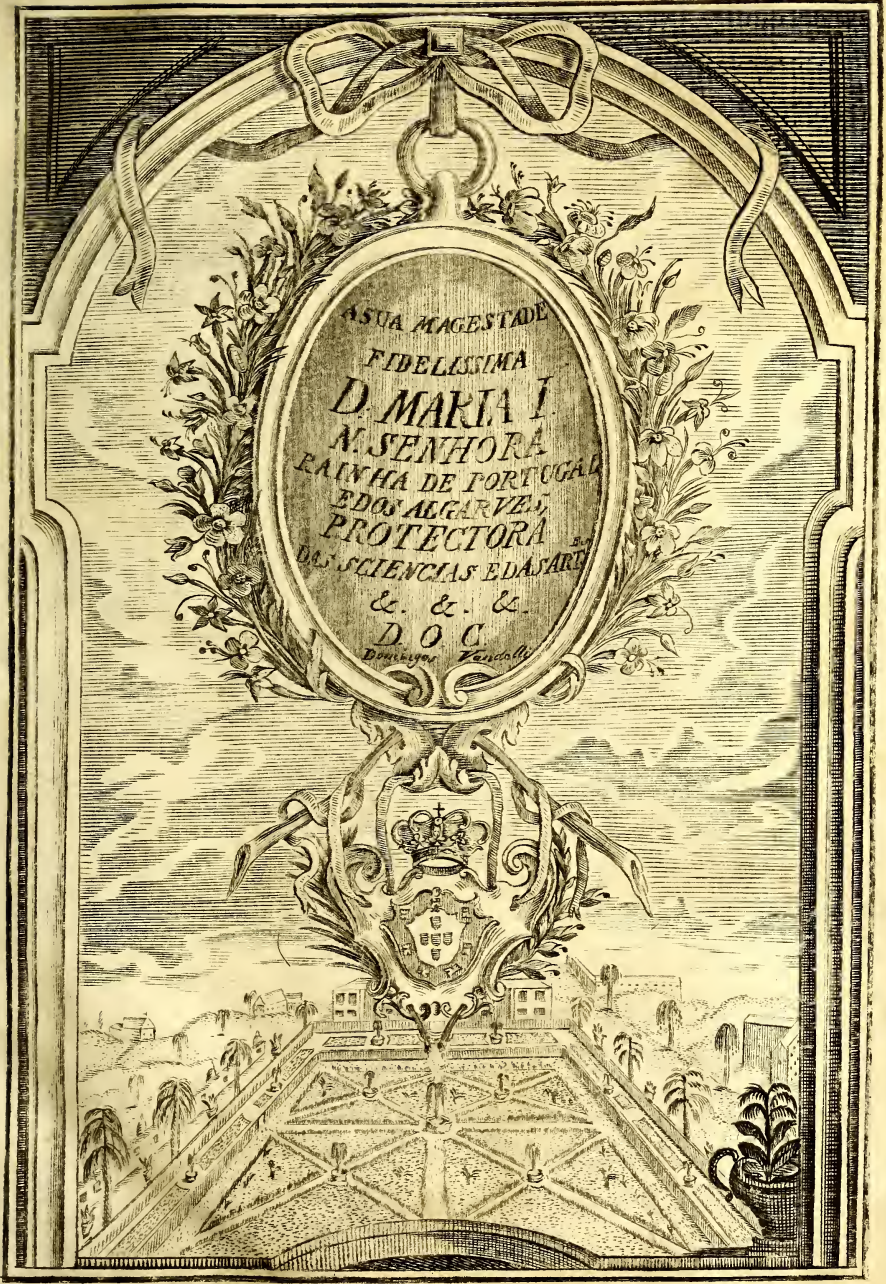 A SUA MAGESTADE
FIDELISSIMA
D. MARIA I.
N. SENHORA
RAINHA DE PORTUGAL
E DOS ALGARVES,
PROTECTORA
DAS SCIENCIAS E DAS ARTES
&. &. &.
D. O. C.
Domingos Vandelli